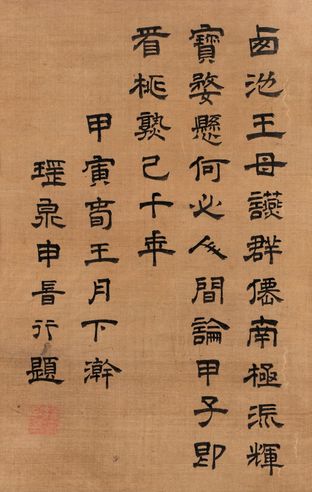 西池王母讌群僊南極流輝
寶婺懸何必人間論甲子即
看桃熟已千年
甲寅春王月下澣
瑤泉申旹行題